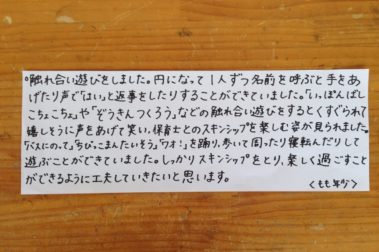 °触れ合い遊びをしました。円になって1人ずつ名前を呼ぶと手をあ
げたり声で「はいっ」と返事をしたりすることができていました。「いっぽんばし
こちょこちょ」や「ぞうきんつくろう」などの触れ合い遊びをするとくすぐられて
嬉しそうに声をあげて笑い、保育士とのスキンシップを楽しむ姿が見られました。
「バスにのって」「ちびっこまんたいそう」「ワオ!」を踊り、歩いて回ったり寝転んだりして
遊ぶことができていました。しっかりスキンシップをとり、楽しく過ごすこと
ができるように工夫していきたいと思います。